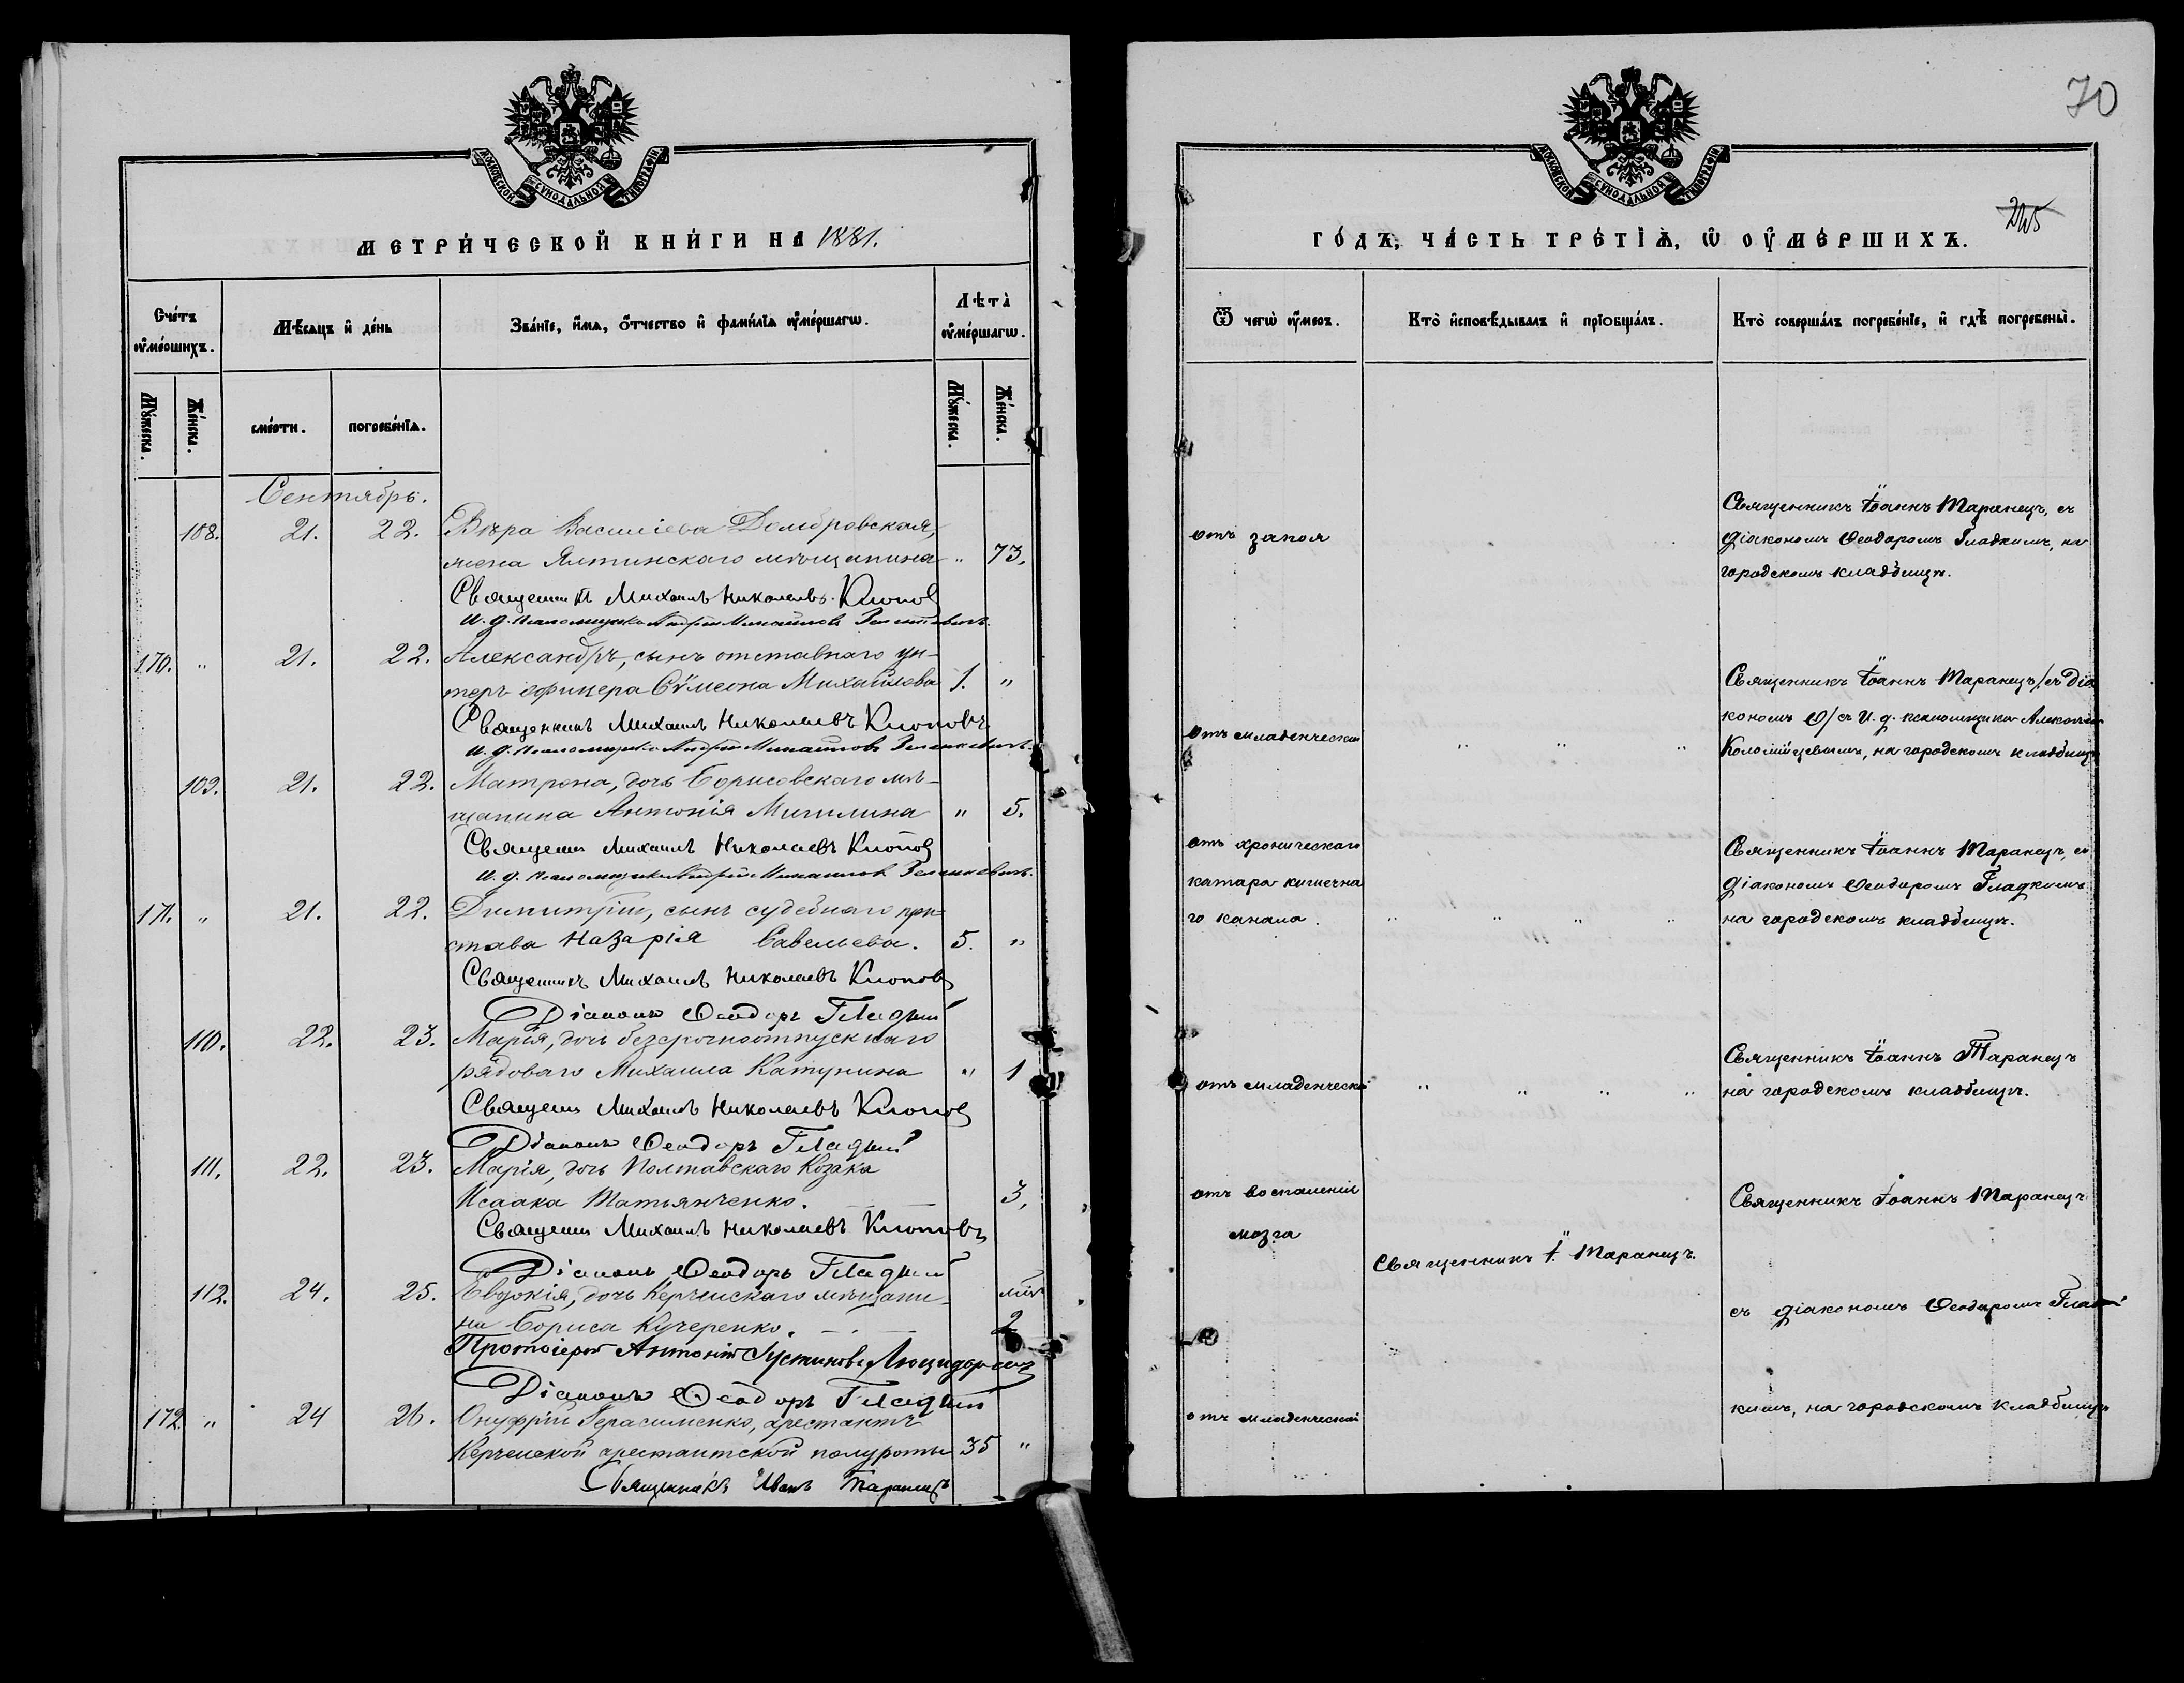 МОСКОВСКОЙ СѴНОДАЛЬНОЙ ТИПОГРАФІИ
МЕТРИ́ЧЕСКОЙ КНИ́ГИ НА 1881.
Сче́тъ ᲂу҆ме́ршихъ.
Мѣ́сяцъ и҆ де́нь
Зва́нїе, и҆́мѧ, ѻ҆́тчество и҆ фами́лїѧ ᲂу҆ме́ршагѡ.
Лѣта̀ ᲂу҆ме́ршагѡ.
Мꙋ́жеска.
Же́нска.
сме́рти.
погребе́нїѧ.
Мꙋ́жеска.
Же́нска.
Сентябрь.
108. 21. 22. Вѣра Василіева Домбровская,
жена Ялтинскаго мѣщанина " 73.
Священник Михаилъ Николаевъ Клопов
И. д. псаломщика Андрей Михайловъ
170. " 21. 22. Александръ, сынъ отставнаго ун-
теръ офицера Сѵмеона Михайлова 1. "
Священникъ Михаилъ Николаевъ Клоповъ
И. д. псаломщика Андрей Михайловъ
109. 21. 22. Матрона, дочь Борисовскаго мѣ-
щанина Антонія Мишлина " 5.
Священ Михаилъ Николаевъ Клопов
И. д. псаломщика Андрей Михайловъ
171. " 21. 22. Димитрій, сынъ судебнаго при-
става Назарія Савельева. 5. "
Священникъ Михаилъ Николаевъ Клопов
Діаконъ Ѳеодоръ Гладкий
110. 22. 23. Марія, дочь безсрочноотпускнаго
рядоваго Михаила Катунина " 1
Священ Михаилъ Николаевъ Клопов
Діаконъ Ѳеодоръ Гладкий
111. 22. 23. Марія, дочь Полтавскаго Козака
Исаака Татьянченко. 3.
Священ Михаилъ Николаевъ Клоповъ
Діаконъ Ѳеодоръ Гладкий
112. 24. 25. Евдокія, дочь Керченскаго мѣщани-
на Бориса Кучеренко. 2
Протоіерей Антоній
Діаконъ Ѳеодоръ Гладкий
172. " 24 26. Онуфрій Герасименко, арестантъ
Керченской арестантской полуроты 35 "
Священникъ Иванъ Таранецъ
70
МОСКОВСКОЙ СѴНОДАЛЬНОЙ ТИПОГРАФІИ
ГО́ДЪ, ЧА́СТЬ ТРЕ́ТІѦ, Ѡ҆ ОУ҆МЕ́РШИХЪ.
Ѿ чегѡ̀ ᲂу҆́меръ.
Кто̀ и҆сповѣ́дывалъ и҆ прїѡбща́лъ.
Кто̀ соверша́лъ погребе́нїе, и҆ гдѣ̀ погребены̀.
отъ запоя
Священникъ Іоаннъ Таранецъ, съ
діакономъ Ѳеодоромъ Гладкимъ, на
городскомъ кладбищѣ.
отъ младенческой " " "
Священникъ Іоаннъ Таранецъ /съ діа
кономъ Ѳ/ съ И. д. псаломщика
Коломійцевымъ, на городскомъ кладбищѣ
отъ хроническаго
катара кишечна
го канала. " " " "
Священникъ Іоаннъ Таранецъ, съ
діакономъ Ѳеодоромъ Гладкимъ
на городскомъ кладбищѣ.
отъ младенческой " " " "
Священникъ Іоаннъ Таранецъ
на городскомъ кладбищѣ.
отъ воспаленія
мозга
Священникъ І. Таранецъ.
Священникъ Іоаннъ Таранецъ
съ діакономъ Ѳеодоромъ Глад
кимъ, на городскомъ кладбищѣ
отъ младенческой